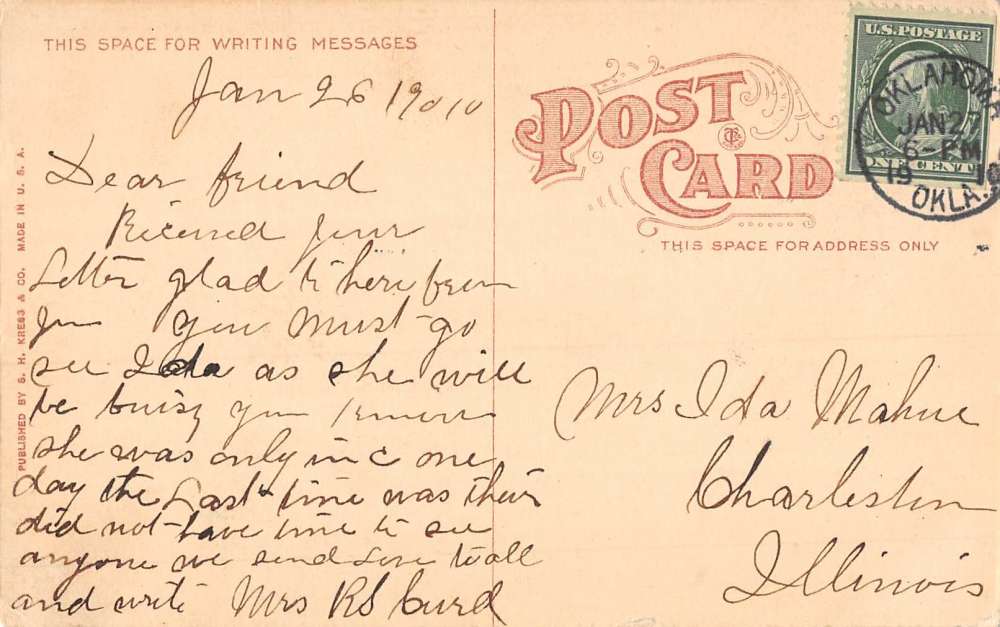 THIS SPACE FOR WRITING MESSAGES
Jan 26 19010
Dear friend
Recieved your
Letter glad to here from
you you must go
see Ida as she will
be buisy you
she was only in c one
day the Last time was their
did not have time to see
anyone we send Love to all
and write Mrs RS Curd
PUBLISHED BY S. H. KRESS & CO. MADE IN U. S. A.
POST
CARD
THIS SPACE FOR ADDRESS ONLY
U.S. POSTAGE
ONE CENT
OKLAHOMA
JAN 27
6-PM
19 10
OKLA.
Mrs Ida Mahue
Charleston
Illinois